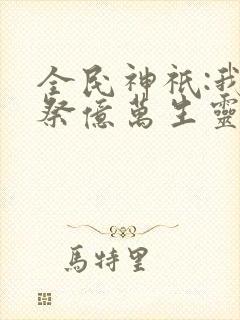 全民神祇:我
祭億萬生靈
馬特里